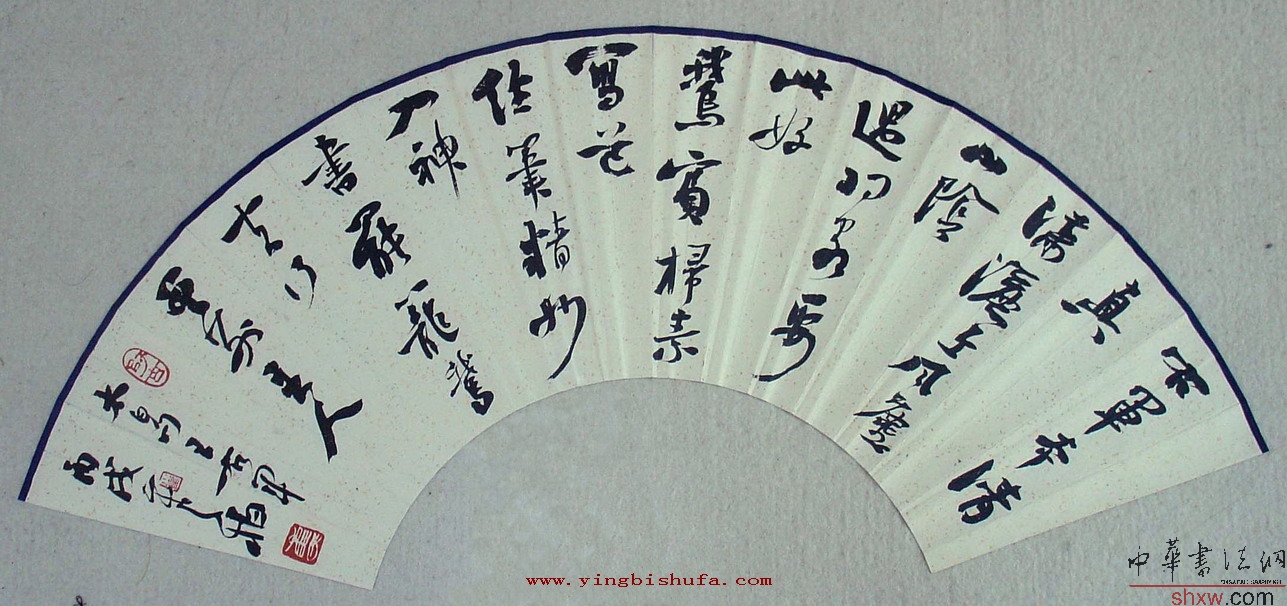 右軍本清
真
瀟灑出風塵
山陰
過羽客要
此好
鵝賓掃素
寫道
經筆精妙
入神
書罷籠鵝
去何
曾別主人
王右軍
丙戌
www.yingbishufa.com
中華書法網
shxw.com